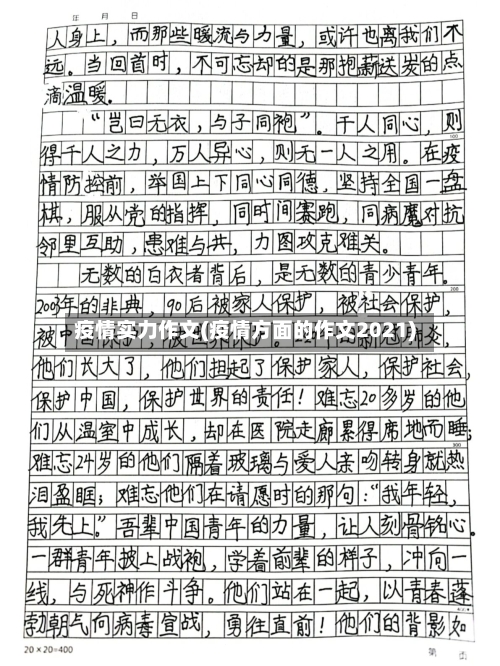 年 月 日
人身上，而那些暖流与力量，或许也离我们不
远。当回首时，不可忘却的是那抱薪送炭的点
滴温暖.
“岂曰无衣，与子同袍”。千人同心，则
100
得千人之力，万人异心，则无一人之用。在疫
情防控前，举国上下同心同德，坚持全国一盘
棋，服从党的指挥，同时间赛跑，同病魔对抗
邻里互助，患难与共，力图攻克难关。
无数的白衣者背后，是无数的青少青年。
200
2003年的非典，90后被家人保护，被社会保护，
疫情实力作文(疫情方面的作文2021)
他们长大了，他们担起了保护家人，保护社会，
保护中国，保护世界的责任！难忘20多岁的他
们从温室中成长，却在医院走廊累得席地而睡；
300
难忘24岁的他们隔着玻璃与爱人亲吻转身就热
泪盈眶；难忘他们在请愿时的那句：“我年轻，
我先上。”吾辈中国青年的力量，让人刻骨铭心。
一群青年披上战袍，学着前辈的样子，冲向一
线，与死神作斗争。他们站在一起，以青春蓬
勃朝气向病毒宣战，勇往直前！他们的背影如
20×20=400
第 页